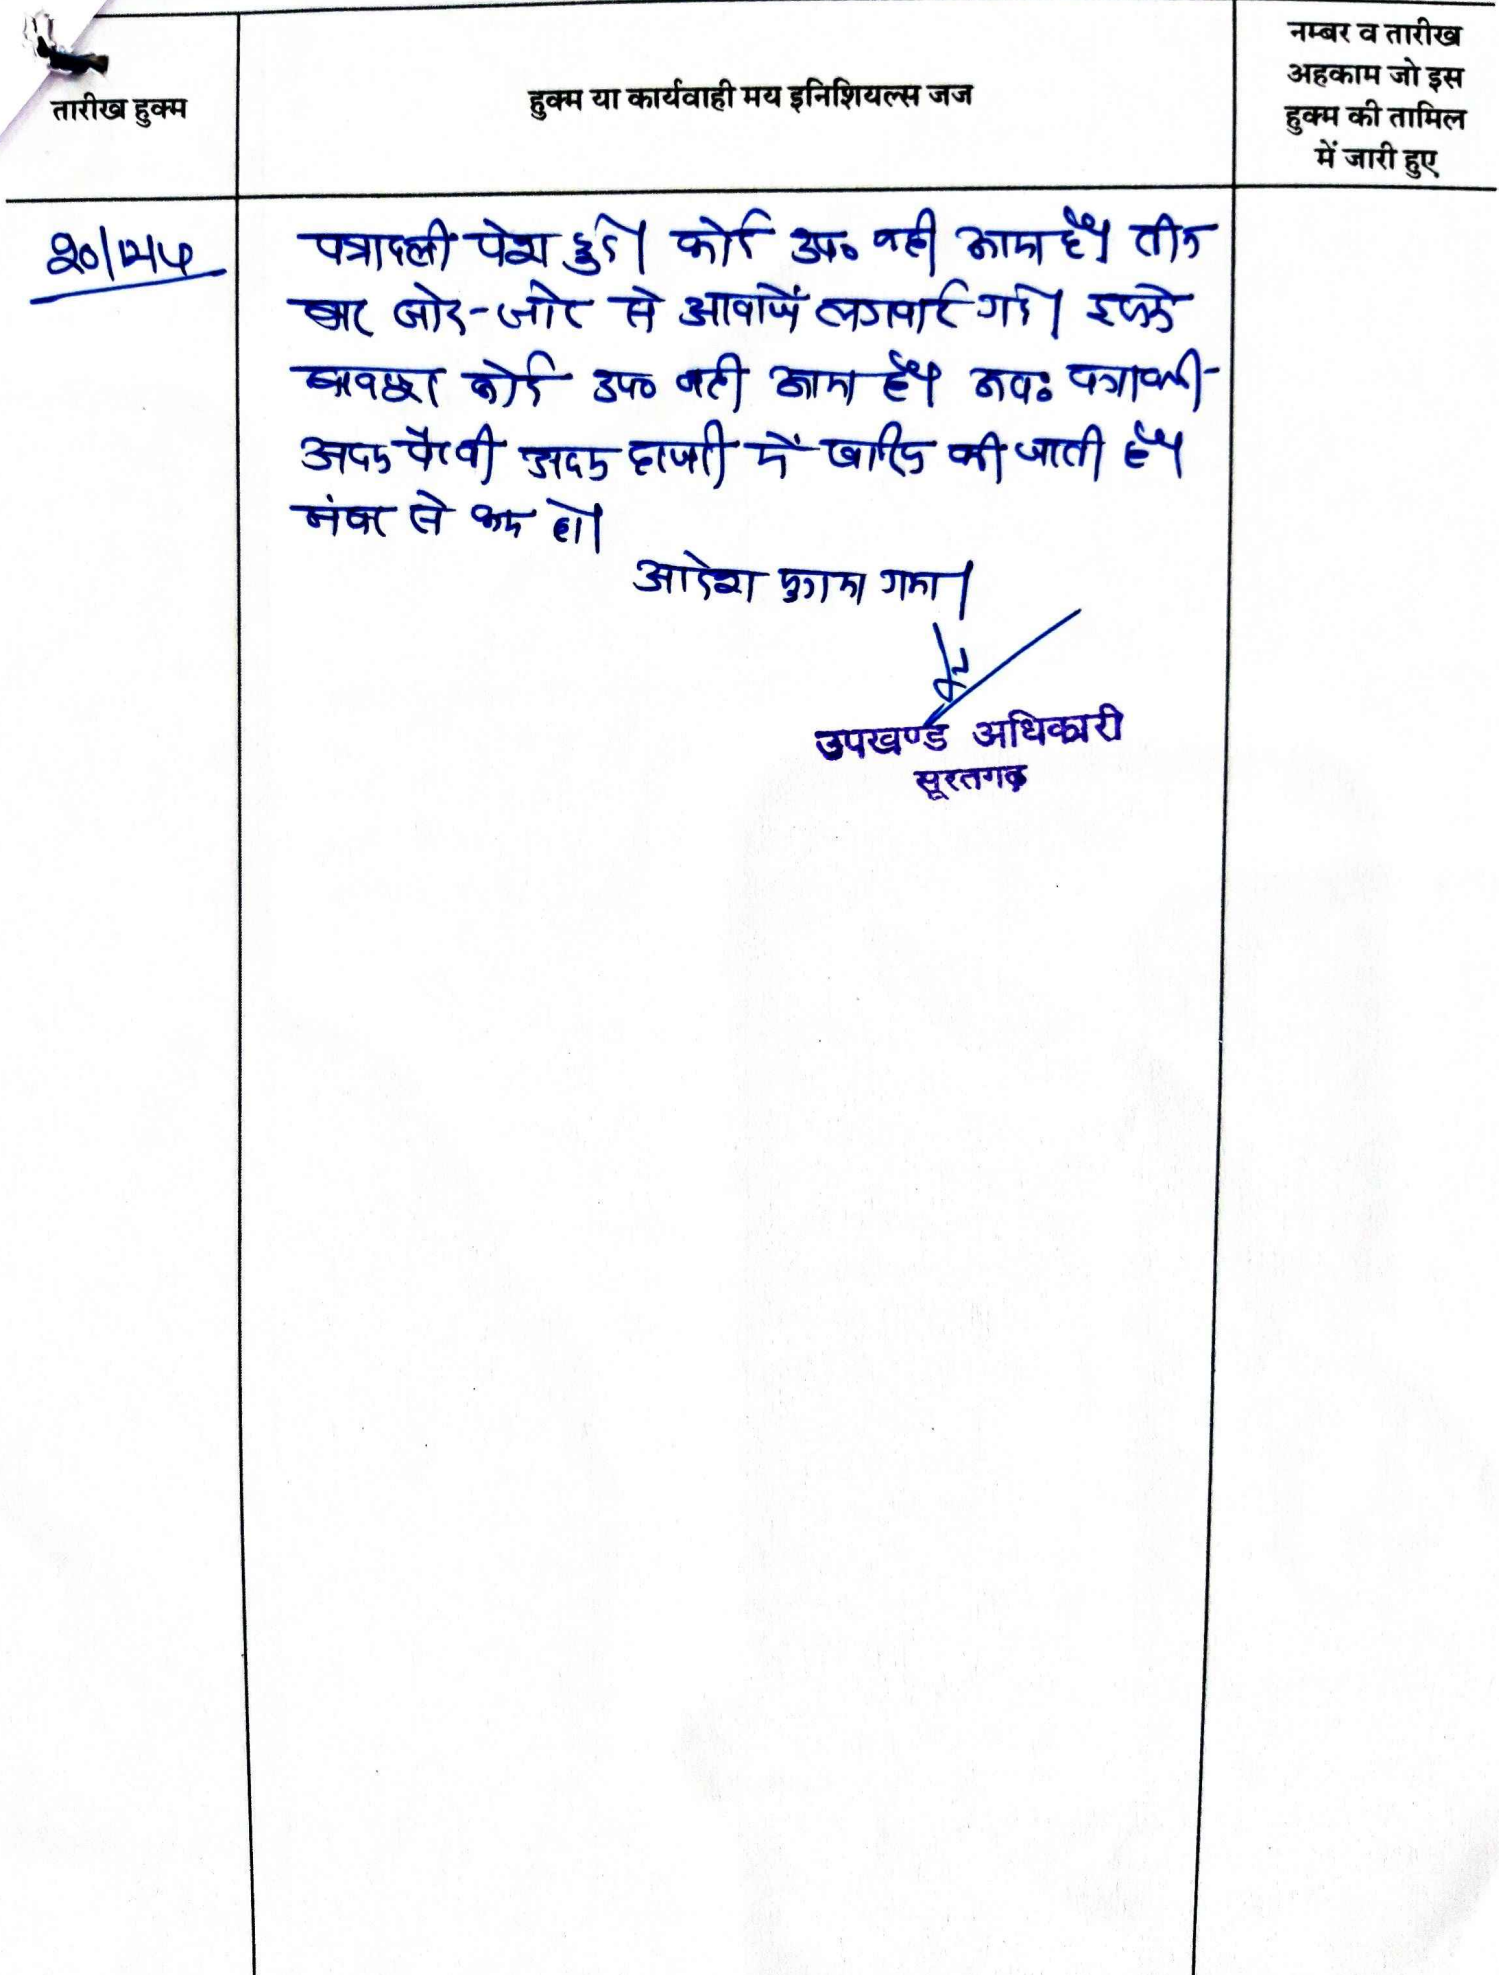 तारीख हुक्म
हुक्म या कार्यवाही मय इनिशियल्स जज
नम्बर व तारीख
अहकाम जो इस
हुक्म की तामिल
में जारी हुए
पत्रावली पेश हुई। कोई उप० नही आया है। तीन
बार जोर-जोर से आवाजें लगवाई गई। इसके
बावजूद कोई उप० नही आया है। अतः पत्रावली
अदम पैरवी अदम हाजरी में खारिज की जाती है।
नंबर से कम हो।
आदेश सुनाया गया।
उपखण्ड अधिकारी
सूरतगढ़